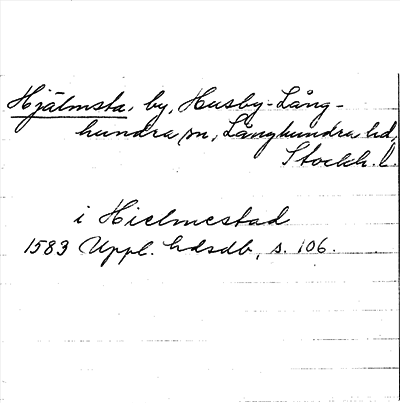 Hjälmsta, by, Husby-Lång-
hundra sn, Långhundra hd,
Stockh. l.
i Hielmestad
1583 Uppl. hdsdb, s. 106.